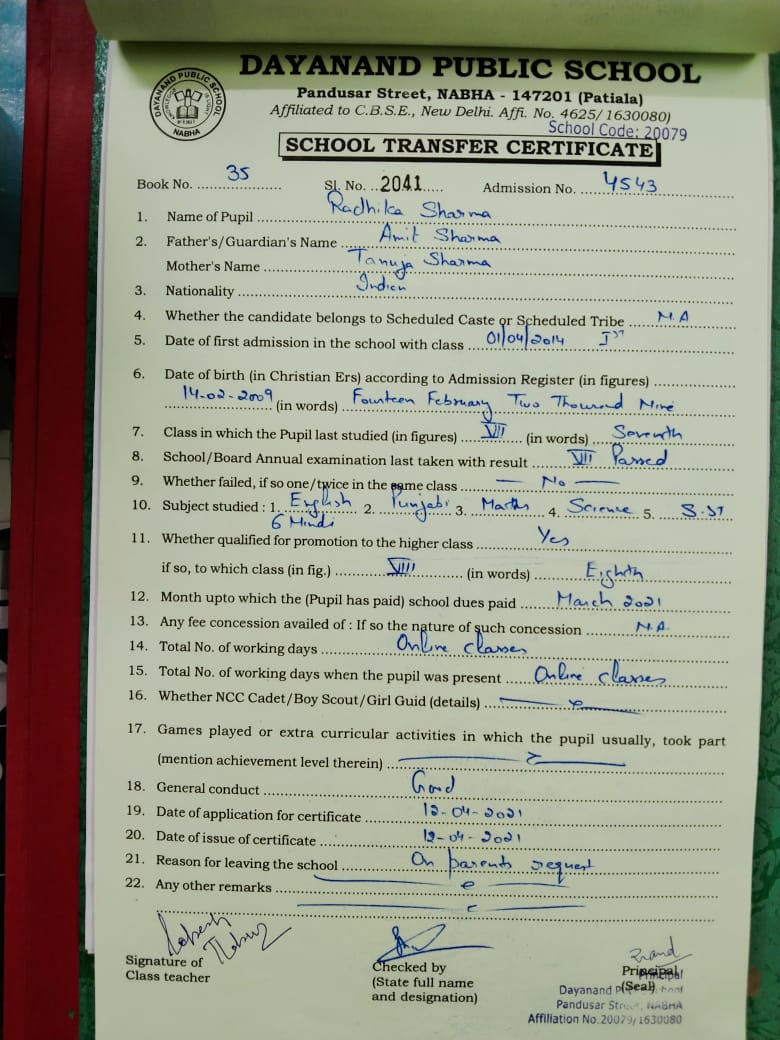 DAYANAND PUBLIC SCHOOL
DAYANAND PUBLIC SCHOOL
NABHA
Pandusar Street, NABHA - 147201 (Patiala)
Affiliated to C.B.S.E., New Delhi. Affi. No. 4625/1630080)
School Code: 20079
SCHOOL TRANSFER CERTIFICATE
Book No. 35 Sl. No. 2041 Admission No. 4543
1. Name of Pupil Radhika Sharma
2. Father's/Guardian's Name Amit Sharma
Mother's Name Tanuja Sharma
3. Nationality Indian
4. Whether the candidate belongs to Scheduled Caste or Scheduled Tribe N.A
5. Date of first admission in the school with class 01/04/2014 Ist
6. Date of birth (in Christian Ers) according to Admission Register (in figures)
14-02-2009 (in words) Fourteen February Two Thousand Nine
7. Class in which the Pupil last studied (in figures) VII (in words) Seventh
8. School/Board Annual examination last taken with result VII Passed
9. Whether failed, if so one/twice in the same class — No —
10. Subject studied : 1. English 2. Punjabi 3. Maths 4. Science 5. S.ST
6 Hindi
11. Whether qualified for promotion to the higher class Yes
if so, to which class (in fig.) VIII (in words) Eighth
12. Month upto which the (Pupil has paid) school dues paid March 2021
13. Any fee concession availed of : If so the nature of such concession N.A.
14. Total No. of working days Online classes
15. Total No. of working days when the pupil was present Online classes
16. Whether NCC Cadet/Boy Scout/Girl Guid (details)
17. Games played or extra curricular activities in which the pupil usually, took part
(mention achievement level therein)
18. General conduct Good
19. Date of application for certificate 12-04-2021
20. Date of issue of certificate 12-04-2021
21. Reason for leaving the school On parents request
22. Any other remarks
Signature of
Class teacher
Checked by
(State full name
and designation)
Principal
Principal
(Seal)
Dayanand Public School
Pandusar Street, NABHA
Affiliation No.20079/1630080